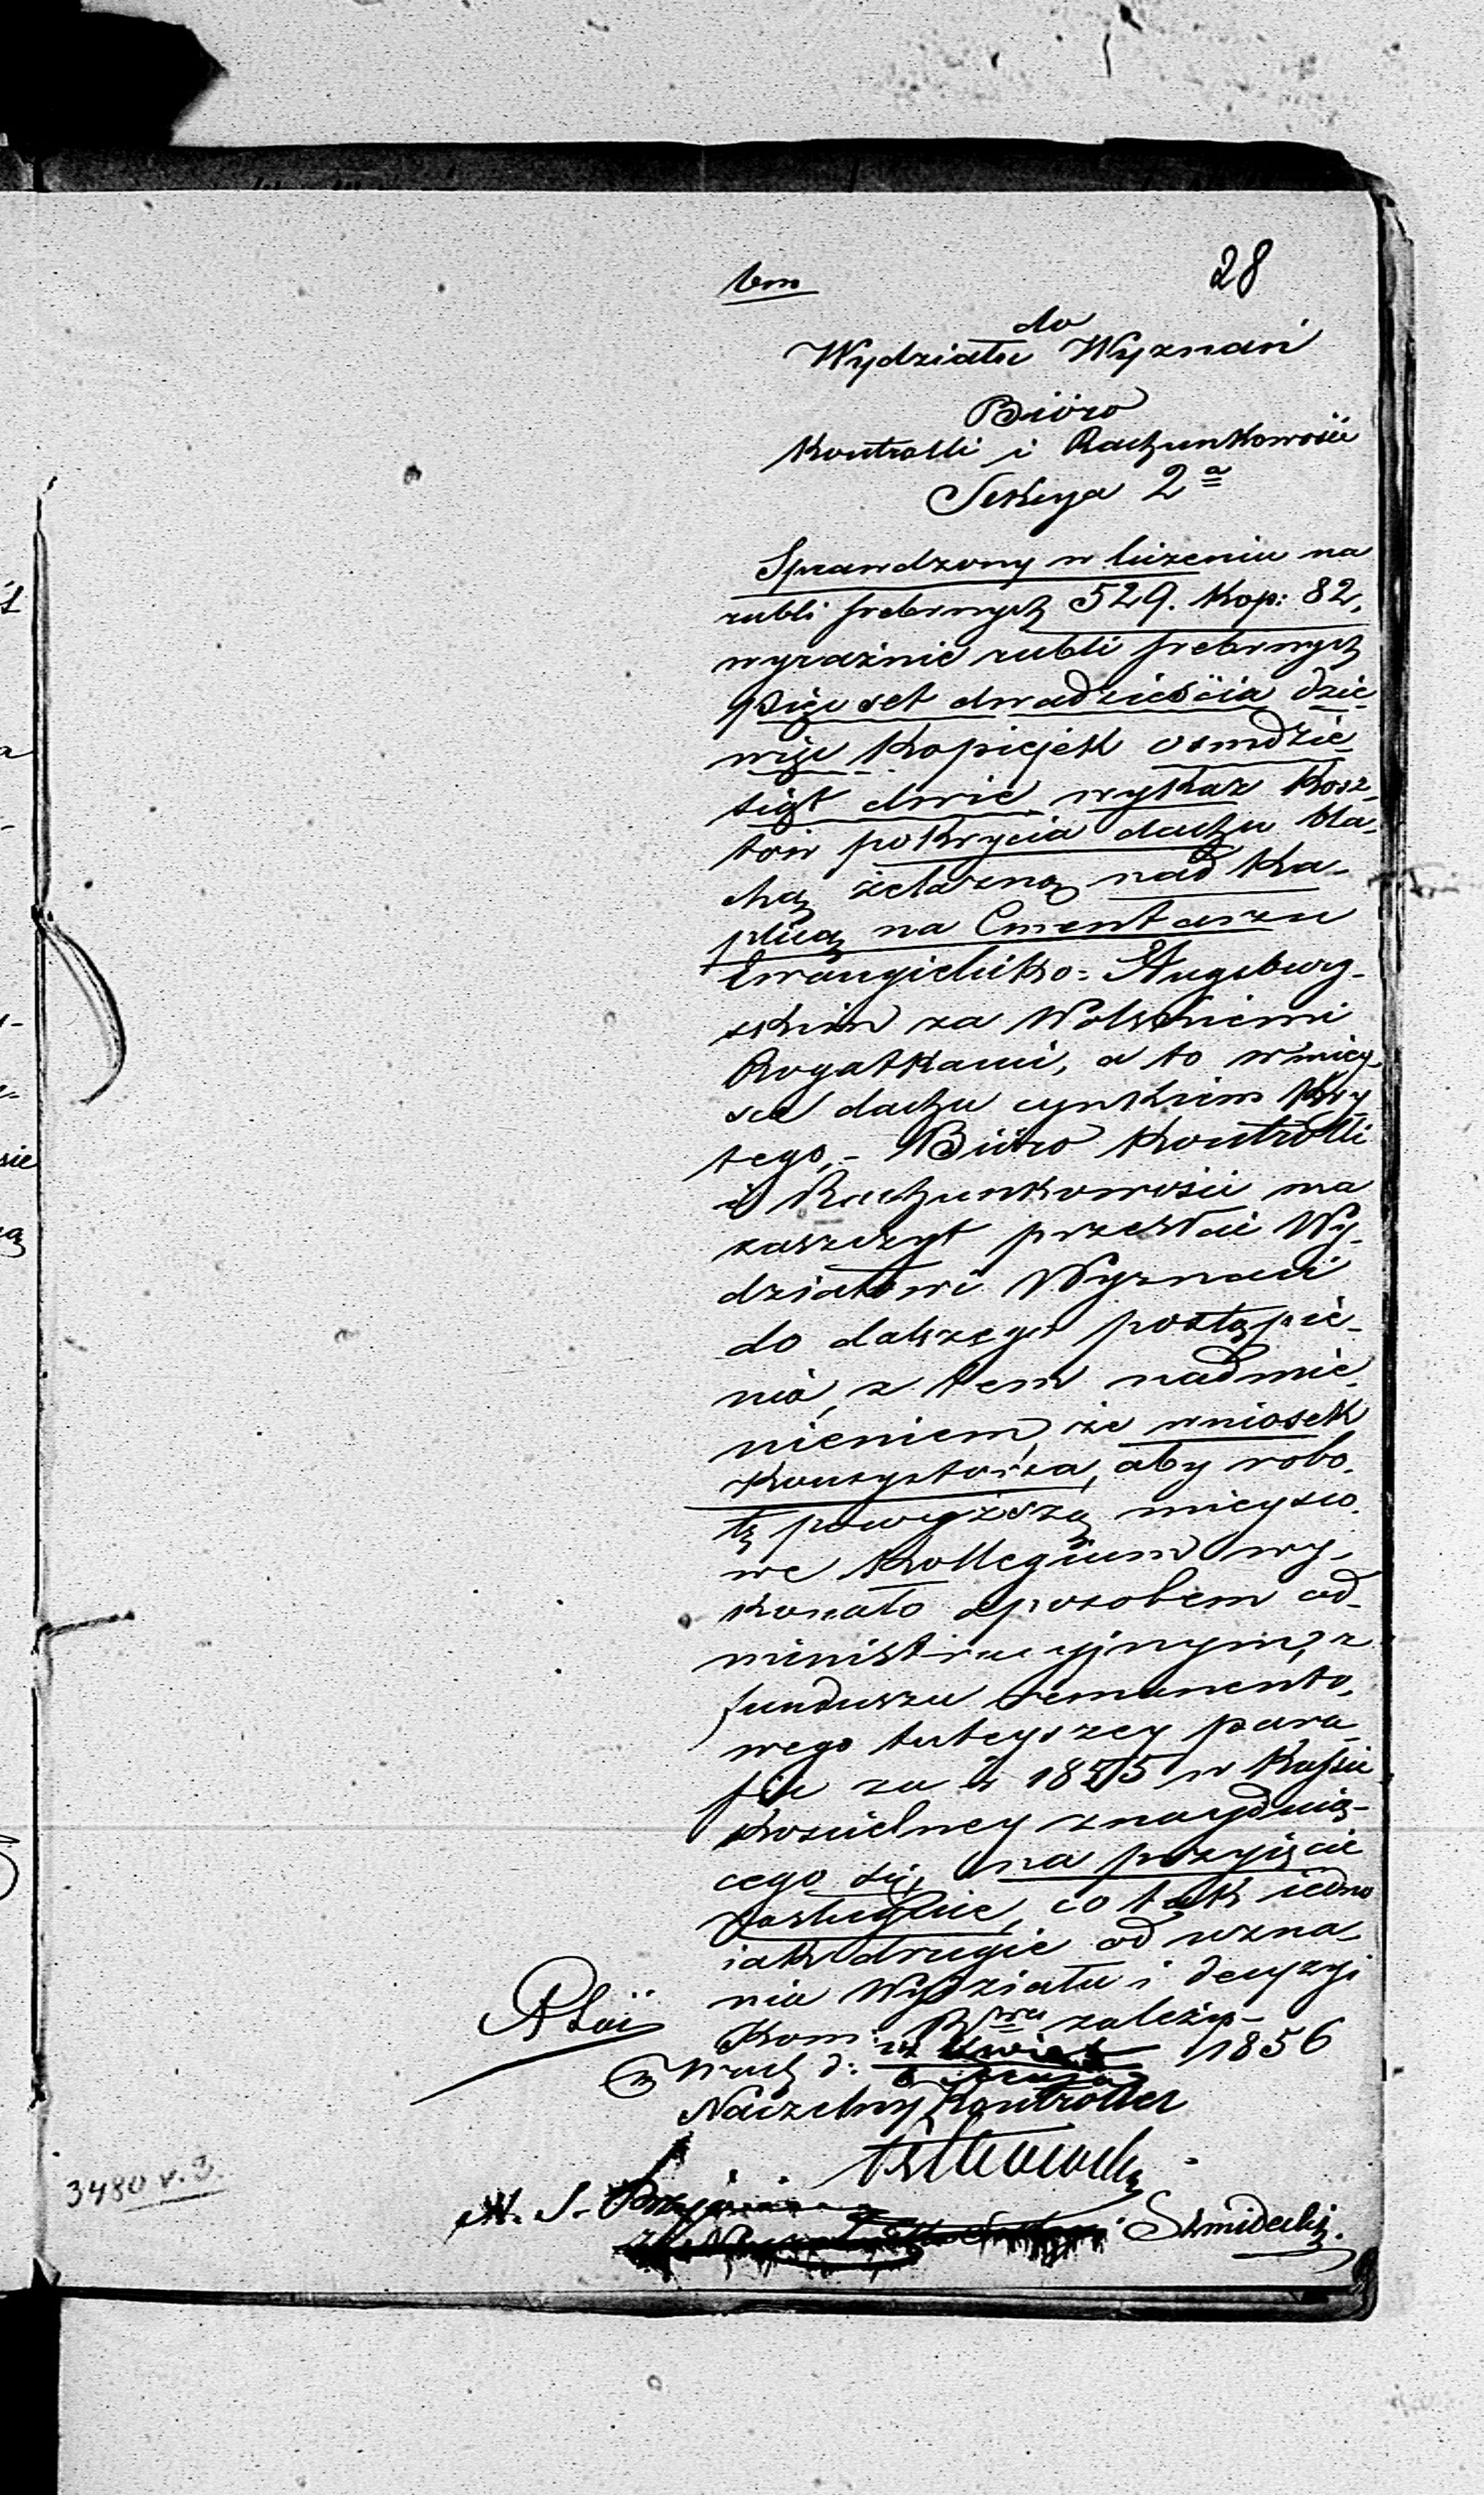 28
do
Wydziału Wyznań
Bióro
Kontrolli i Rachunkowości
Sekcya 2a
Sprawdzony w liczeniu na
rubli srebrnych 529. Kop: 82,
wyraźnie rubli srebrnych
pięćset dwadzieścia dzie-
więć Kopiejek osmdzie-
siąt dwie, wykaz Kosz-
tów pokrycia dachu bla-
chą żelazną nad Ka-
plicą na Cmentarzu
Ewangielicko-Augsburg-
skim za Wolskiemi
Rogatkami, a to w miey-
sce dachu cynkiem Kry-
tego,- Biüro Kontrolli
i Rachunkowości ma
zaszczyt przesłać Wy-
działowi Wyznań
do dalszego postąpie-
nia, z tem nadmie-
nieniem, że wniosek
Konsystorza, aby robo-
tę powyższą mieysco-
we Kollegium wy-
konało sposobem ad-
ministracyjnym, z
funduszu remanento-
wego tuteyszey para-
fii za r. 1855 w Kassie
Kościelney znayduią-
cego się, na przyięcie
zasługuie, co tak iedno
iak drugie od uzna-
nia Wydziału i decyzyi
Kom: Rwéj zależy.-
w Warsz d: 1856
Naczelny Kontroller
3480 v. 3.